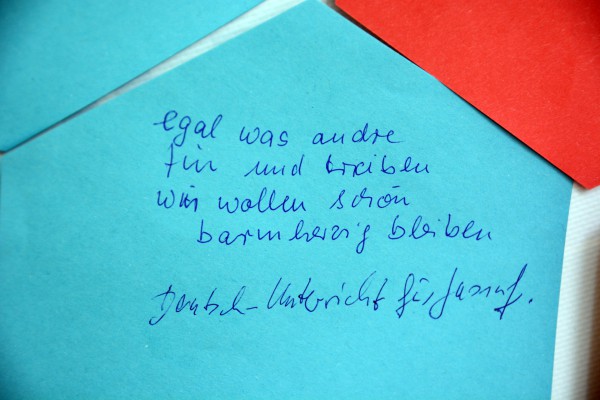 egal was andre
tun und treiben
wir wollen schön
barmherzig bleiben
Deutsch-Unterricht für Jussuf.